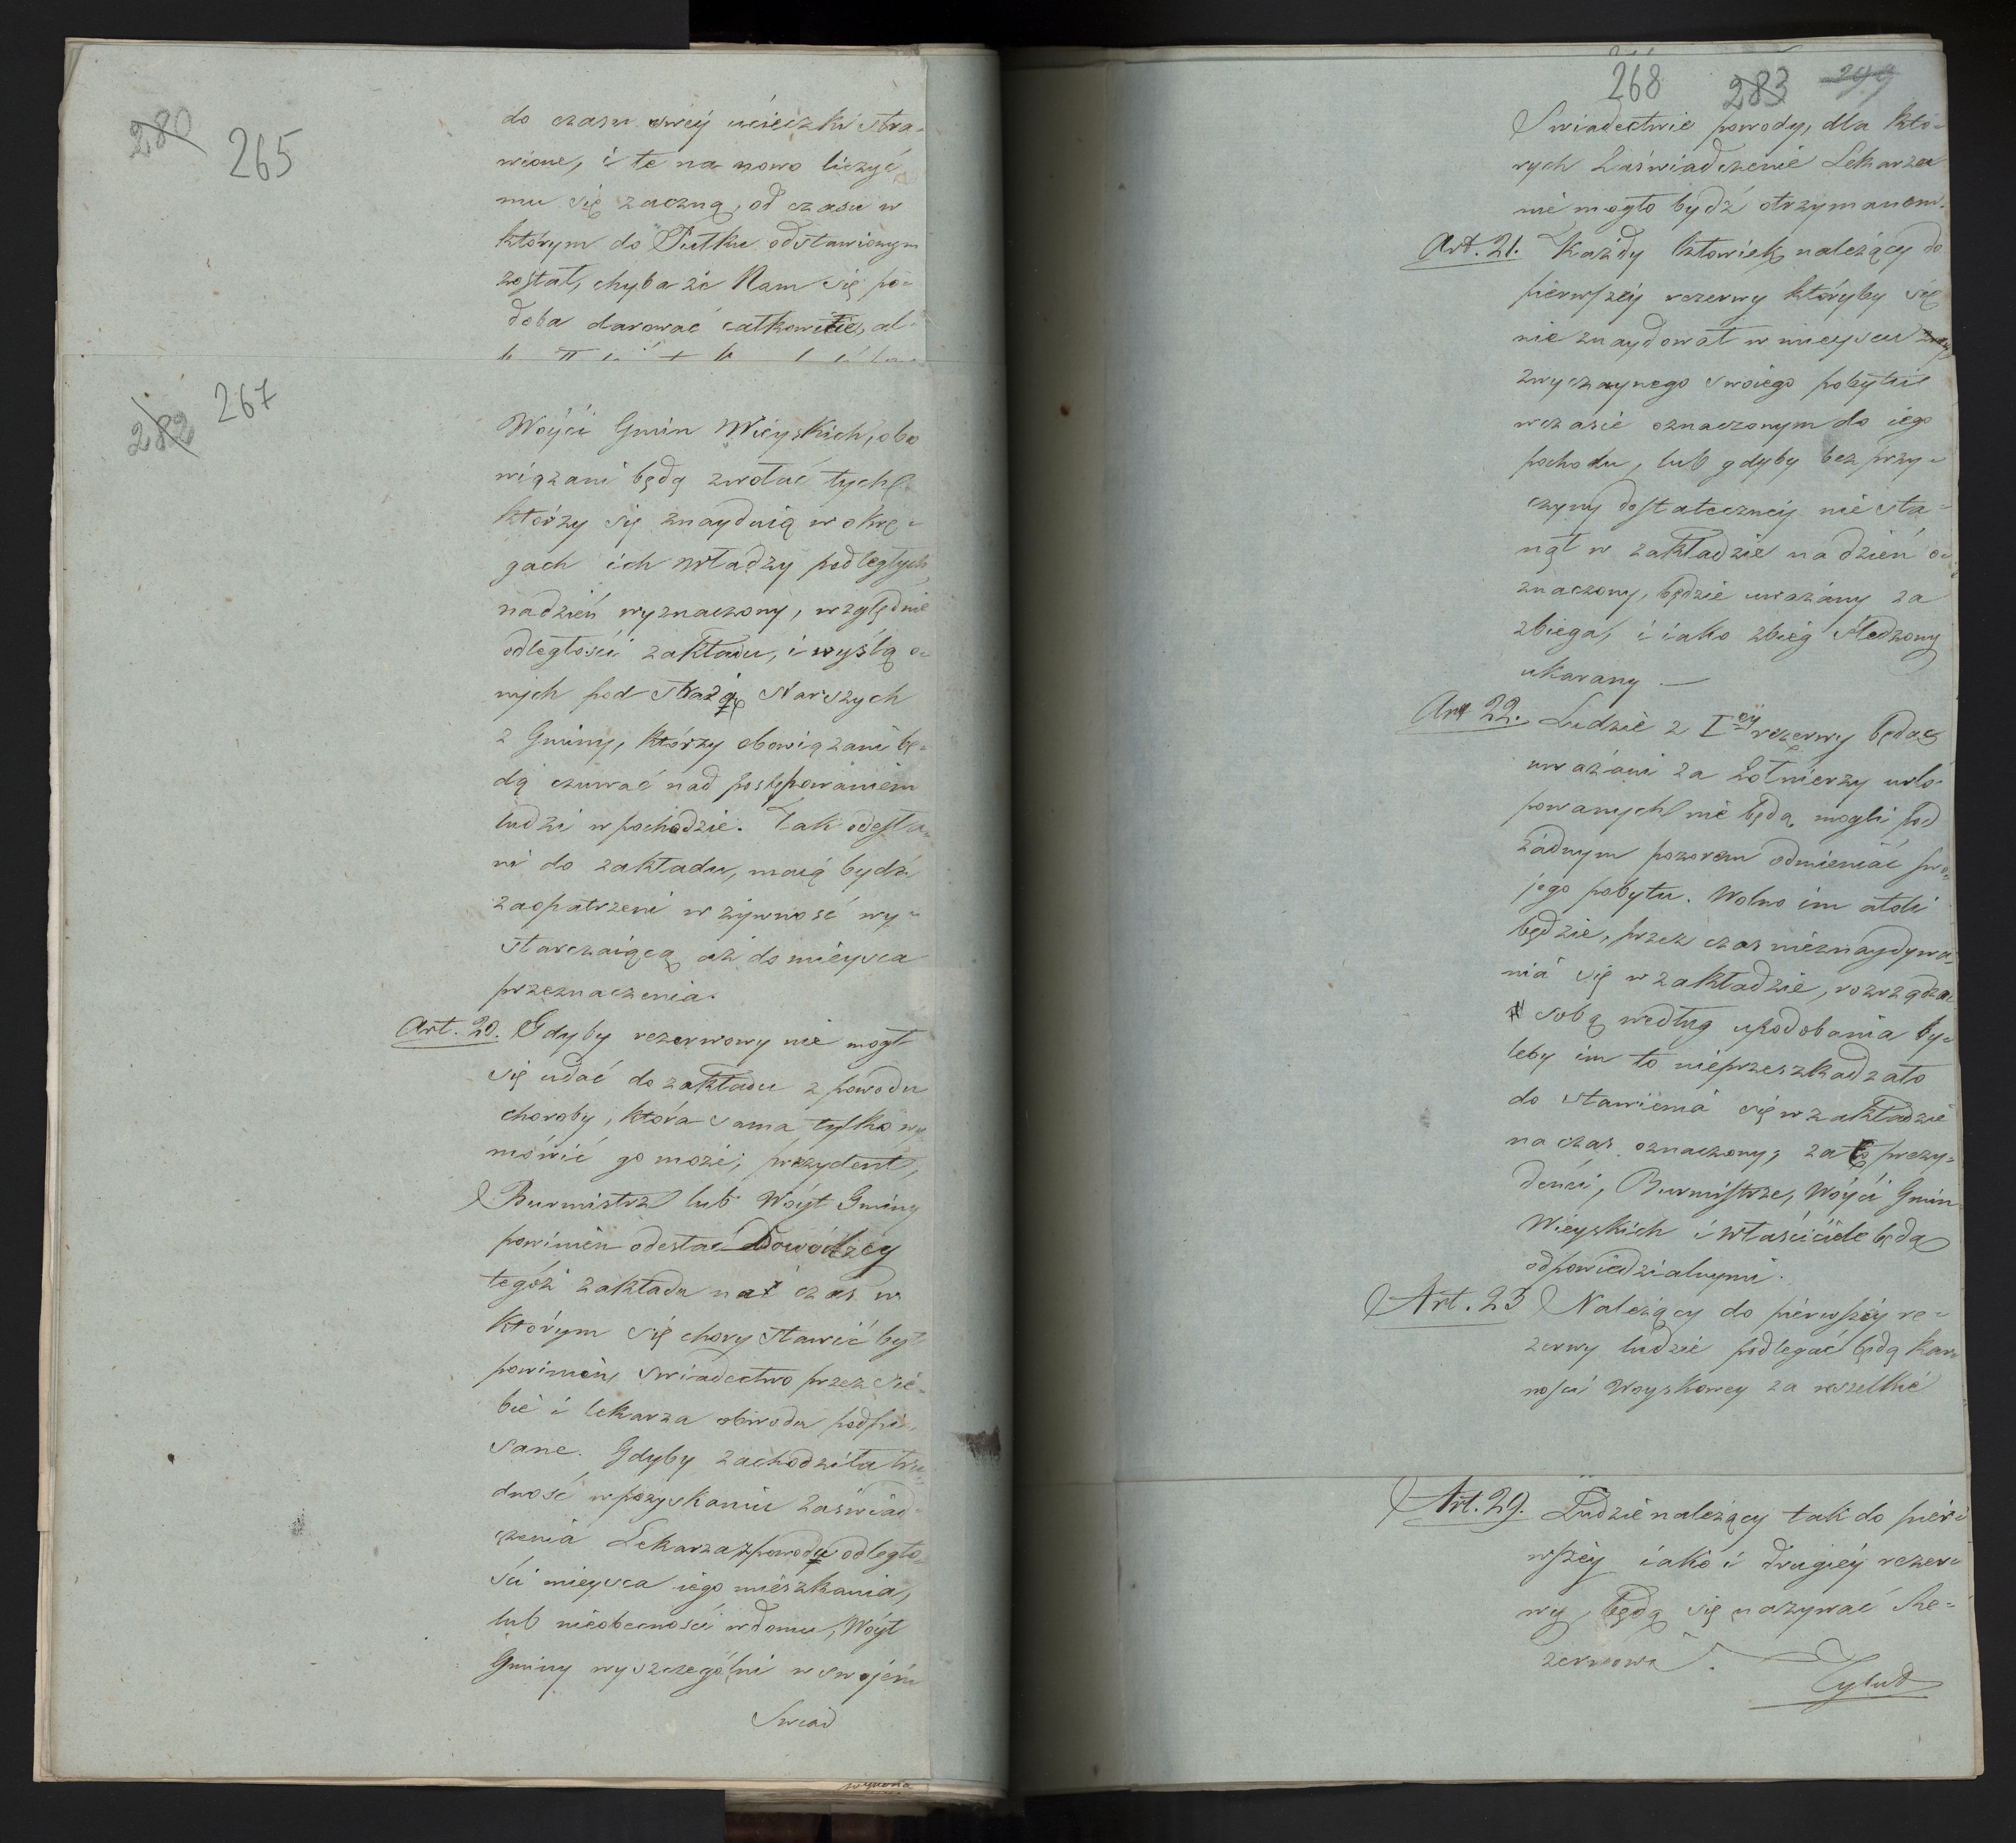 280 265
do czasu swey ucieczki stra-
wione, i te na nowo liczyć
mu się zaczną, od czasu w
którym do Pułku odstawionym
został, chyba że Nam się po-
doba darować całkowicie, al-
282 267
Wóyci Gmin Wieyskich, obo
wiązani będą zwołać tych
którzy się znayduią w okrę-
gach ich władzy podległych,
na dzień wyznaczony, względnie
odległości zakładu, i wyślą o-
nych pod strażą starszych
z Gminy, którzy obowiązani bę-
dą czuwać nad postępowaniem
ludzi w pochodzie. Tak odesła-
ni do zakładu, maią bydź
zaopatrzeni w żywność wy-
starczaiącą aż do mieysca
przeznaczenia.
Art. 20. Gdyby rezerwowy nie mogł
się udać do zakładu z powodu
choroby, która sama tylko wy
mówić go może, prezydent,
Burmistrz lub Wóyt Gminy
powinien odesłać Dowódzcy
tegóż zakładu na czas w
którym się chory stawić był
powinien, swiadectwo przez sie-
bie i lekarza obwodu podpi-
sane. Gdyby zachodziła tru-
dność w pozyskaniu zaświad-
czenia Lekarza z powodu odległo-
ści mieysca iego mieszkania,
lub nieobecności w domu, Wóyt
Gminy wyszczególni w swojém
Swiad
268 283 299
Swiadectwie powody, dla któ-
rych Zaświadczenie Lekarza
nie mogło bydź otrzymanem.
Art. 21. Każdy Człowiek należący do
pierwszéy rezerwy któryby się
nie znaydował w mieyscu
zwyczaynego swoiego pobytu
w czasie oznaczonym do iego
pochodu, lub gdyby bez przy-
czyny dostateczney nie sta-
nął w zakładzie na dzień o-
znaczony, będzie uważany za
zbiega, i iako zbieg śledzony
ukarany —
Art 22. Ludzie z I<sup>ey</sup> rezerwy będąc
uważani za Żołnierzy urlo-
powanych nie będą mogli pod
żadnym pozorem odmieniać swo-
jego pobytu. Wolno im atoli
będzie, przez czas nieznaydywa-
nia się w zakładzie, rozrządzać
sobą według upodobania by-
leby im to nieprzeszkadzało
do stawienia się w zakładzie
na czas oznaczony; za to prezy-
denci, Burmistrze, Wóyci Gmin
Wieyskich i właściciele będą
odpowiedzialnymi.
Art. 23 Należący do pierwszéy re-
zerwy ludzie podlegać będą kar-
ności Woyskowey za wszelkie
Art. 29. Ludzie należący tak do pier-
wszéy iako i drugiéy rezer-
wy, będą się nazywać Re-
zerwowi.
Tytuł